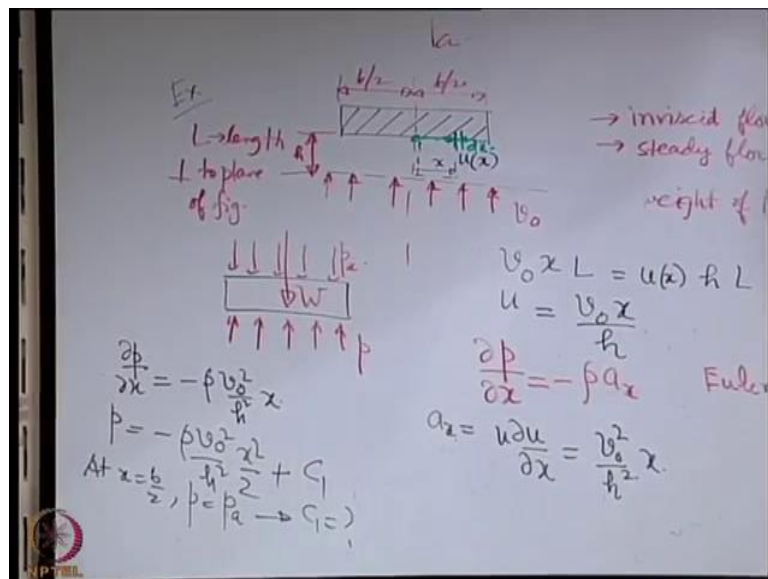 Ex.
b/2 b/2
L → length
⊥ to plane
of fig.
h
dx
x u(x)
v₀
→ inviscid flow
→ steady flow
weight of
pₐ
W
p
v₀ x L = u(x) h L
u = v₀ x / h
∂p/∂x = -ρ aₓ Euler
aₓ = u ∂u/∂x = v₀²/h² x.
∂p/∂x = -ρ v₀²/h² x.
p = -ρv₀²/h² x²/2 + C₁
At x = b/2, p = pₐ → C₁ = ?
NPTEL